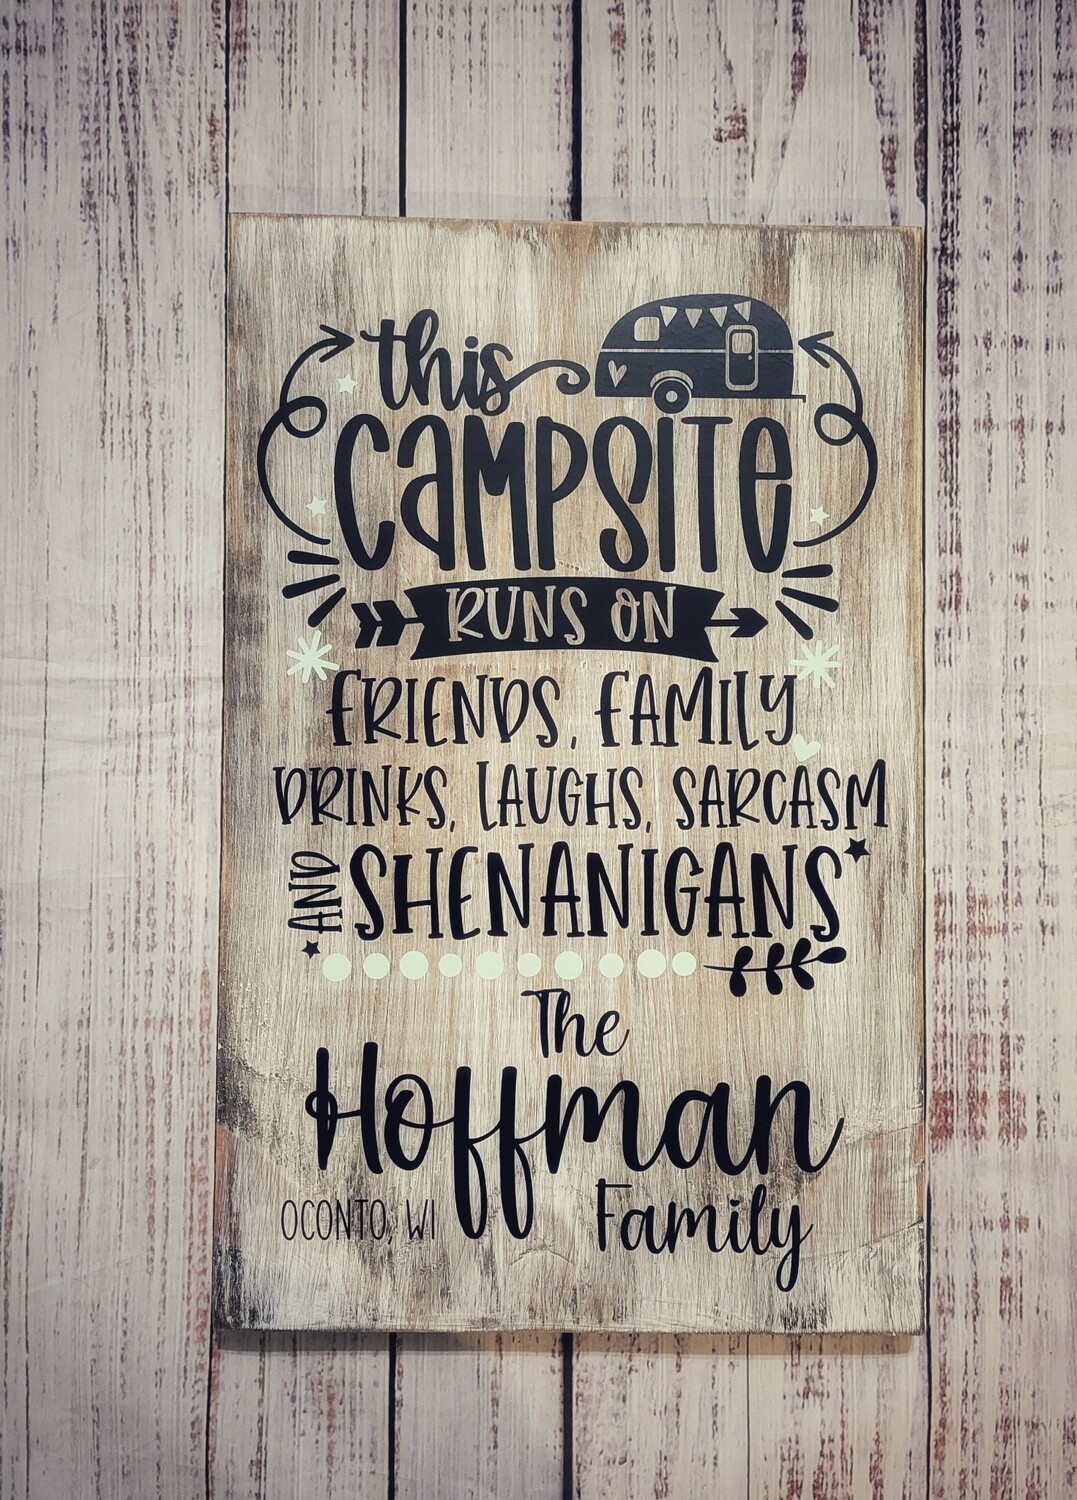 this
CAMPSITE
RUNS ON
FRIENDS, FAMILY
DRINKS, LAUGHS, SARCASM
AND SHENANIGANS
The
Hoffman
OCONTO, WI Family